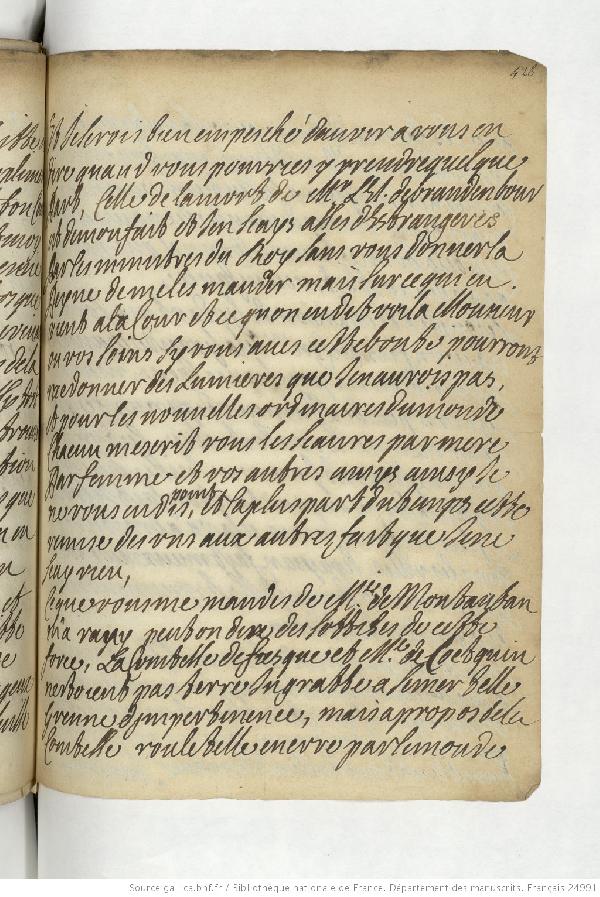 428
Et Je serois bien empesché d'auoir a vous en
dire quand vous pourries y prendre quelque
part, Celle de la mort de Mr L'El. de brandenbour
est de mon fait et J'en scays assés d'Estrangeres
par les ministres du Roy sans vous donner la
peyne de me les mander mais sur ce qui en
vient a la Cour et ce qu'on en dit voila Monsieur
ou vos soins sy vous aues cette bonté pourront
me donner des Lumieres que Je n'aurois pas,
et pour les nouuelles ordinaires du monde
Chacun m'escrit vous les scaures par mere
par femme et vos autres amys ainsy Je
ne vous en dis point, et la plus part du temps cette
remise des uns aux autres fait que Je ne
scay rien,
Ce que vous me mandes de Mlle de Montauban
m'a rauy peut on dire des sottises de cette
force, La Comtesse de fiesque et Mlle de Coetquin
n'estoient pas terre ingratte a semer telle
graine d'impertinence, mais a propos de la
Comtesse roule t'elle encore par le monde
Source gallica.bnf.fr / Bibliothèque nationale de France. Département des manuscrits. Français 24991